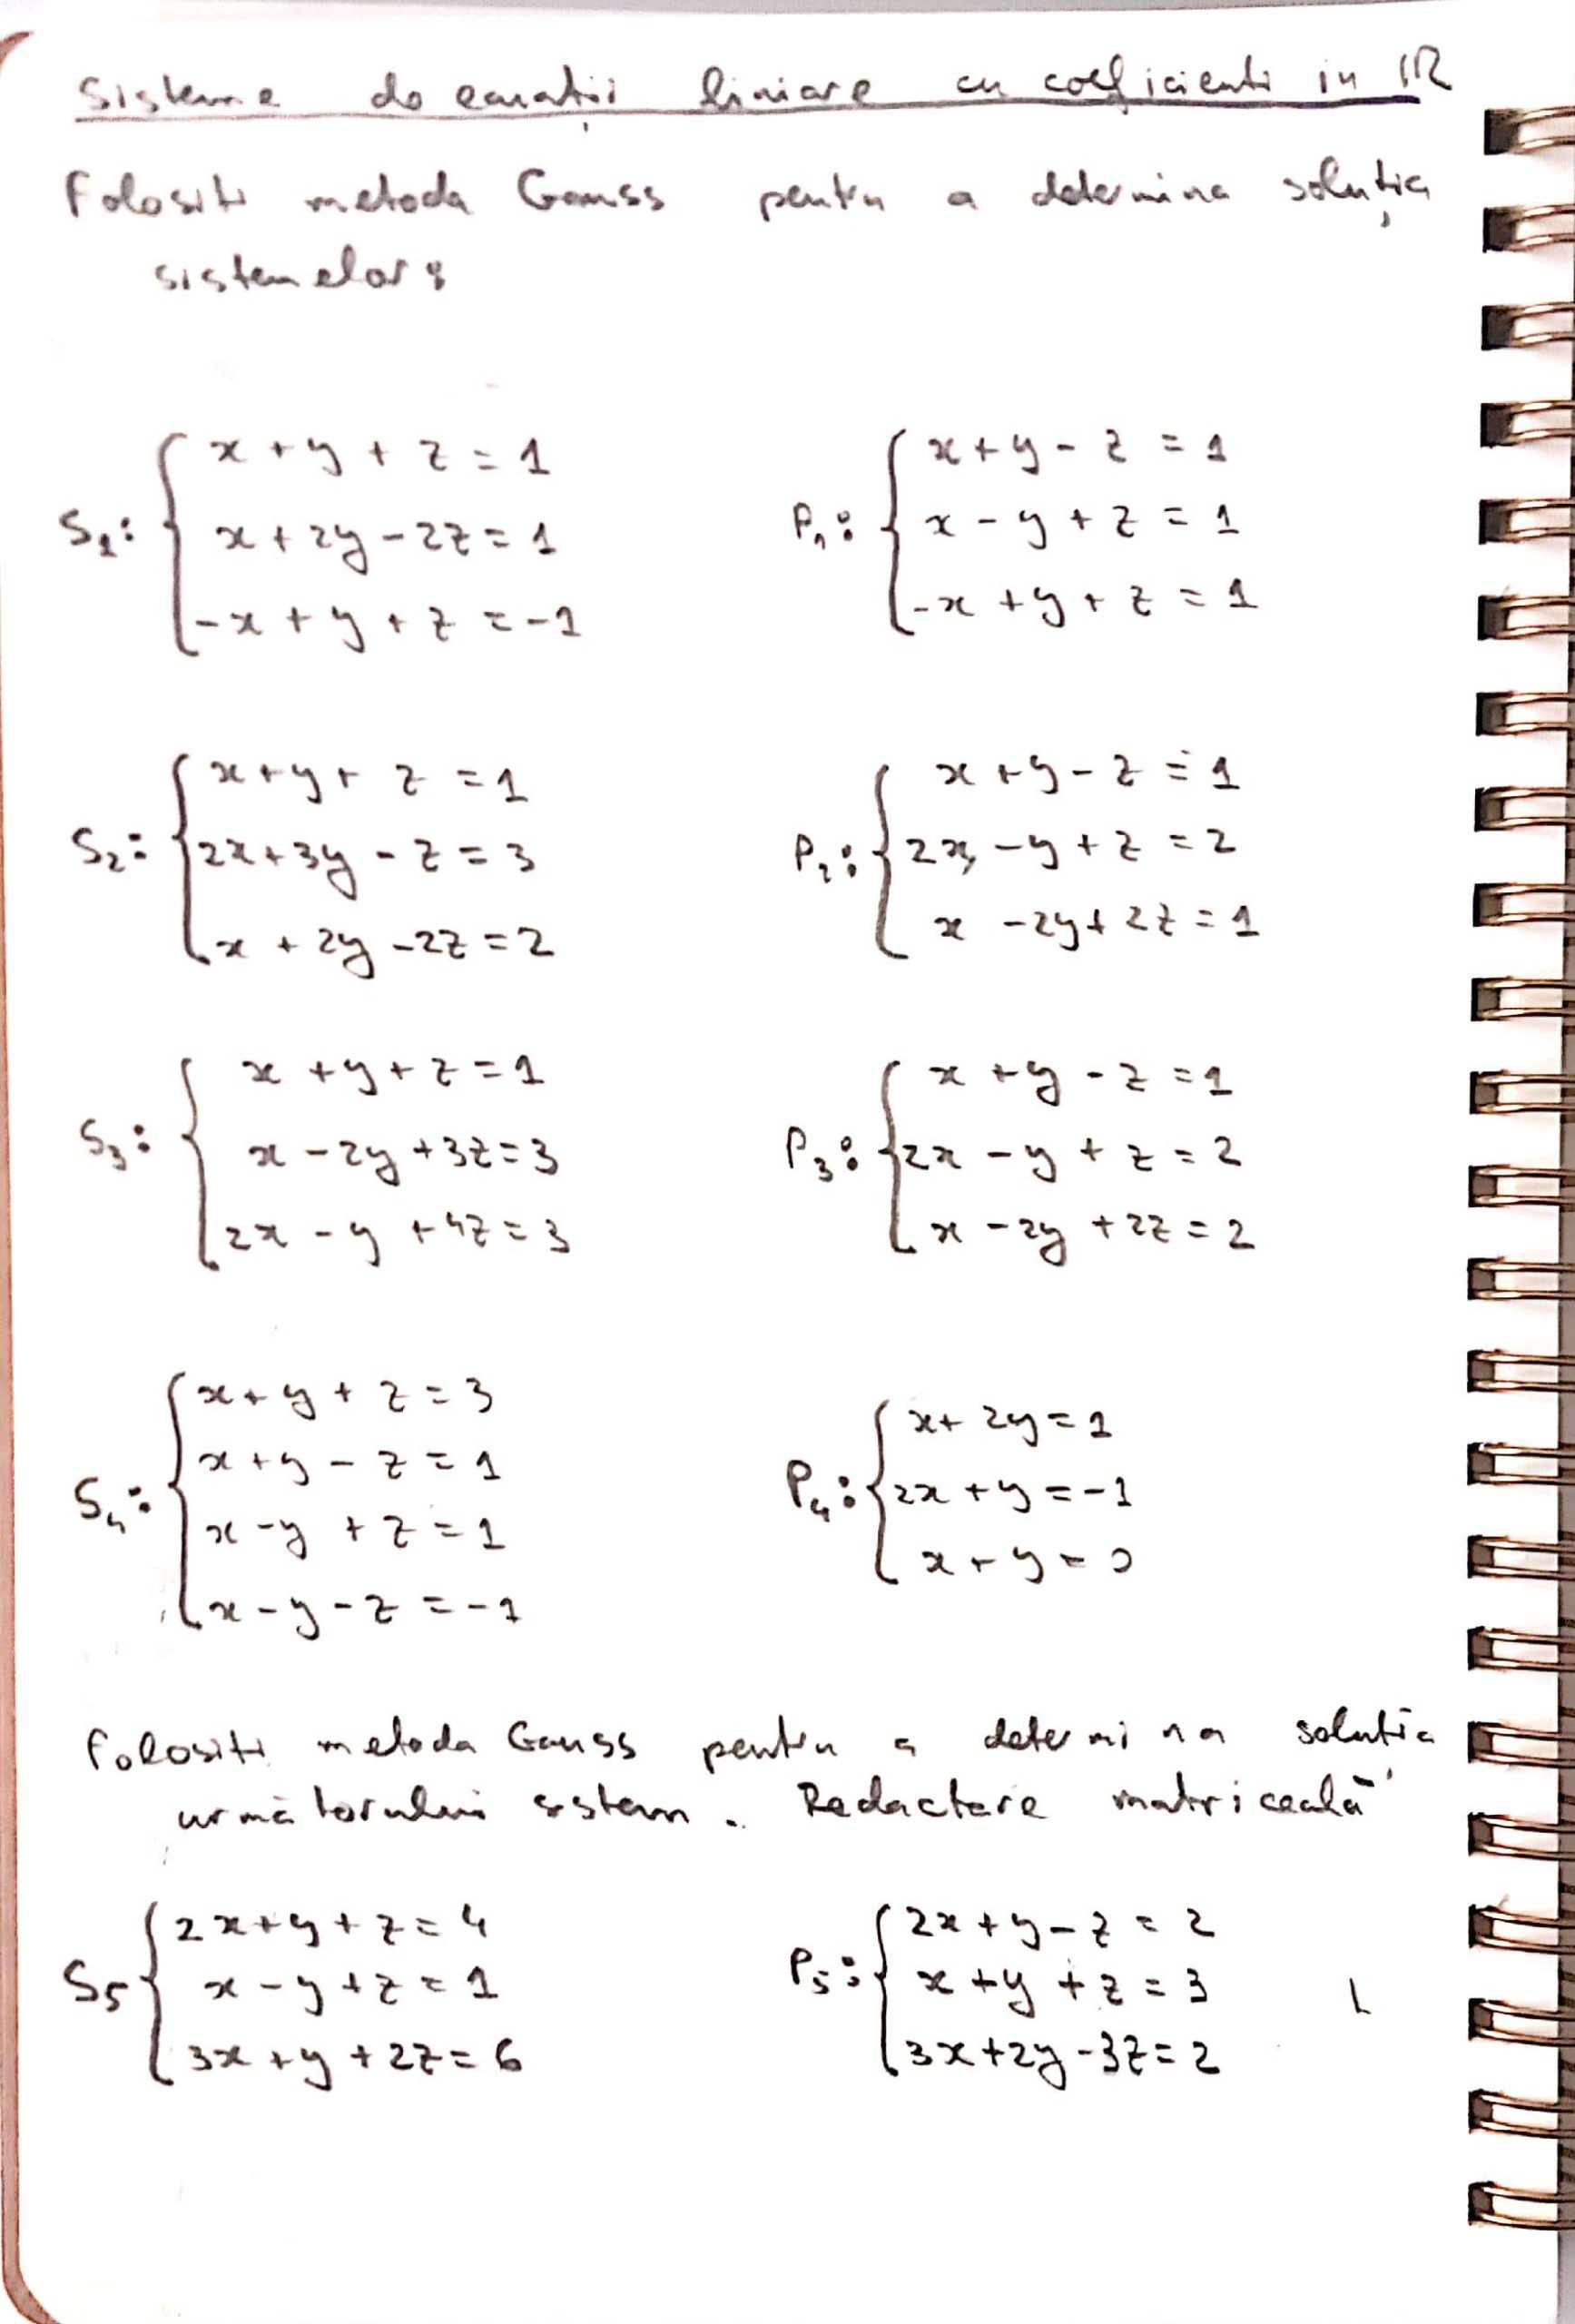 Sisteme de ecuații liniare cu coeficienti in ℝ
Folositi metoda Gauss pentru a determina soluția
sistemelor:
S₁: { x + y + z = 1
x + 2y - 2z = 1
-x + y + z = -1
P₁: { x + y - z = 1
x - y + z = 1
-x + y + z = 1
S₂: { x + y + z = 1
2x + 3y - z = 3
x + 2y - 2z = 2
P₂: { x + y - z = 1
2x - y + z = 2
x - 2y + 2z = 1
S₃: { x + y + z = 1
x - 2y + 3z = 3
2x - y + 4z = 3
P₃: { x + y - z = 1
2x - y + z = 2
x - 2y + 2z = 2
S₄: { x + y + z = 3
x + y - z = 1
x - y + z = 1
x - y - z = -1
P₄: { x + 2y = 1
2x + y = -1
x + y = 0
Folositi metoda Gauss pentru a determina soluția
următorului sistem. Redactare matriceală
S5 { 2x + y + z = 4
x - y + z = 1
3x + y + 2z = 6
P₅: { 2x + y - z = 2
x + y + z = 3
3x + 2y - 3z = 2